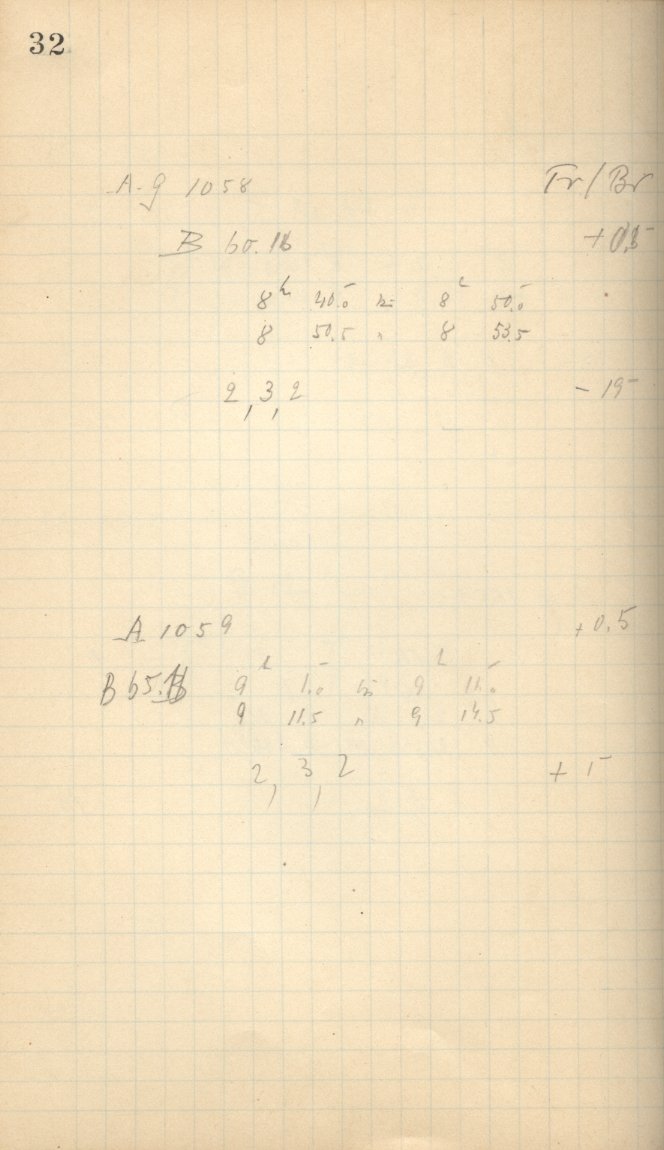 32
A.g 1058 Tr/Br
B 60.16 +0,5
8h 40.0 bis 8h 50.0
8 50.5 " 8 53.5
2, 3, 2 - 15
A 1059 +0.5
B 65.
9h 1.0 bis 9h 11.0
9 11.5 " 9 14.5
2, 3, 2 + 1